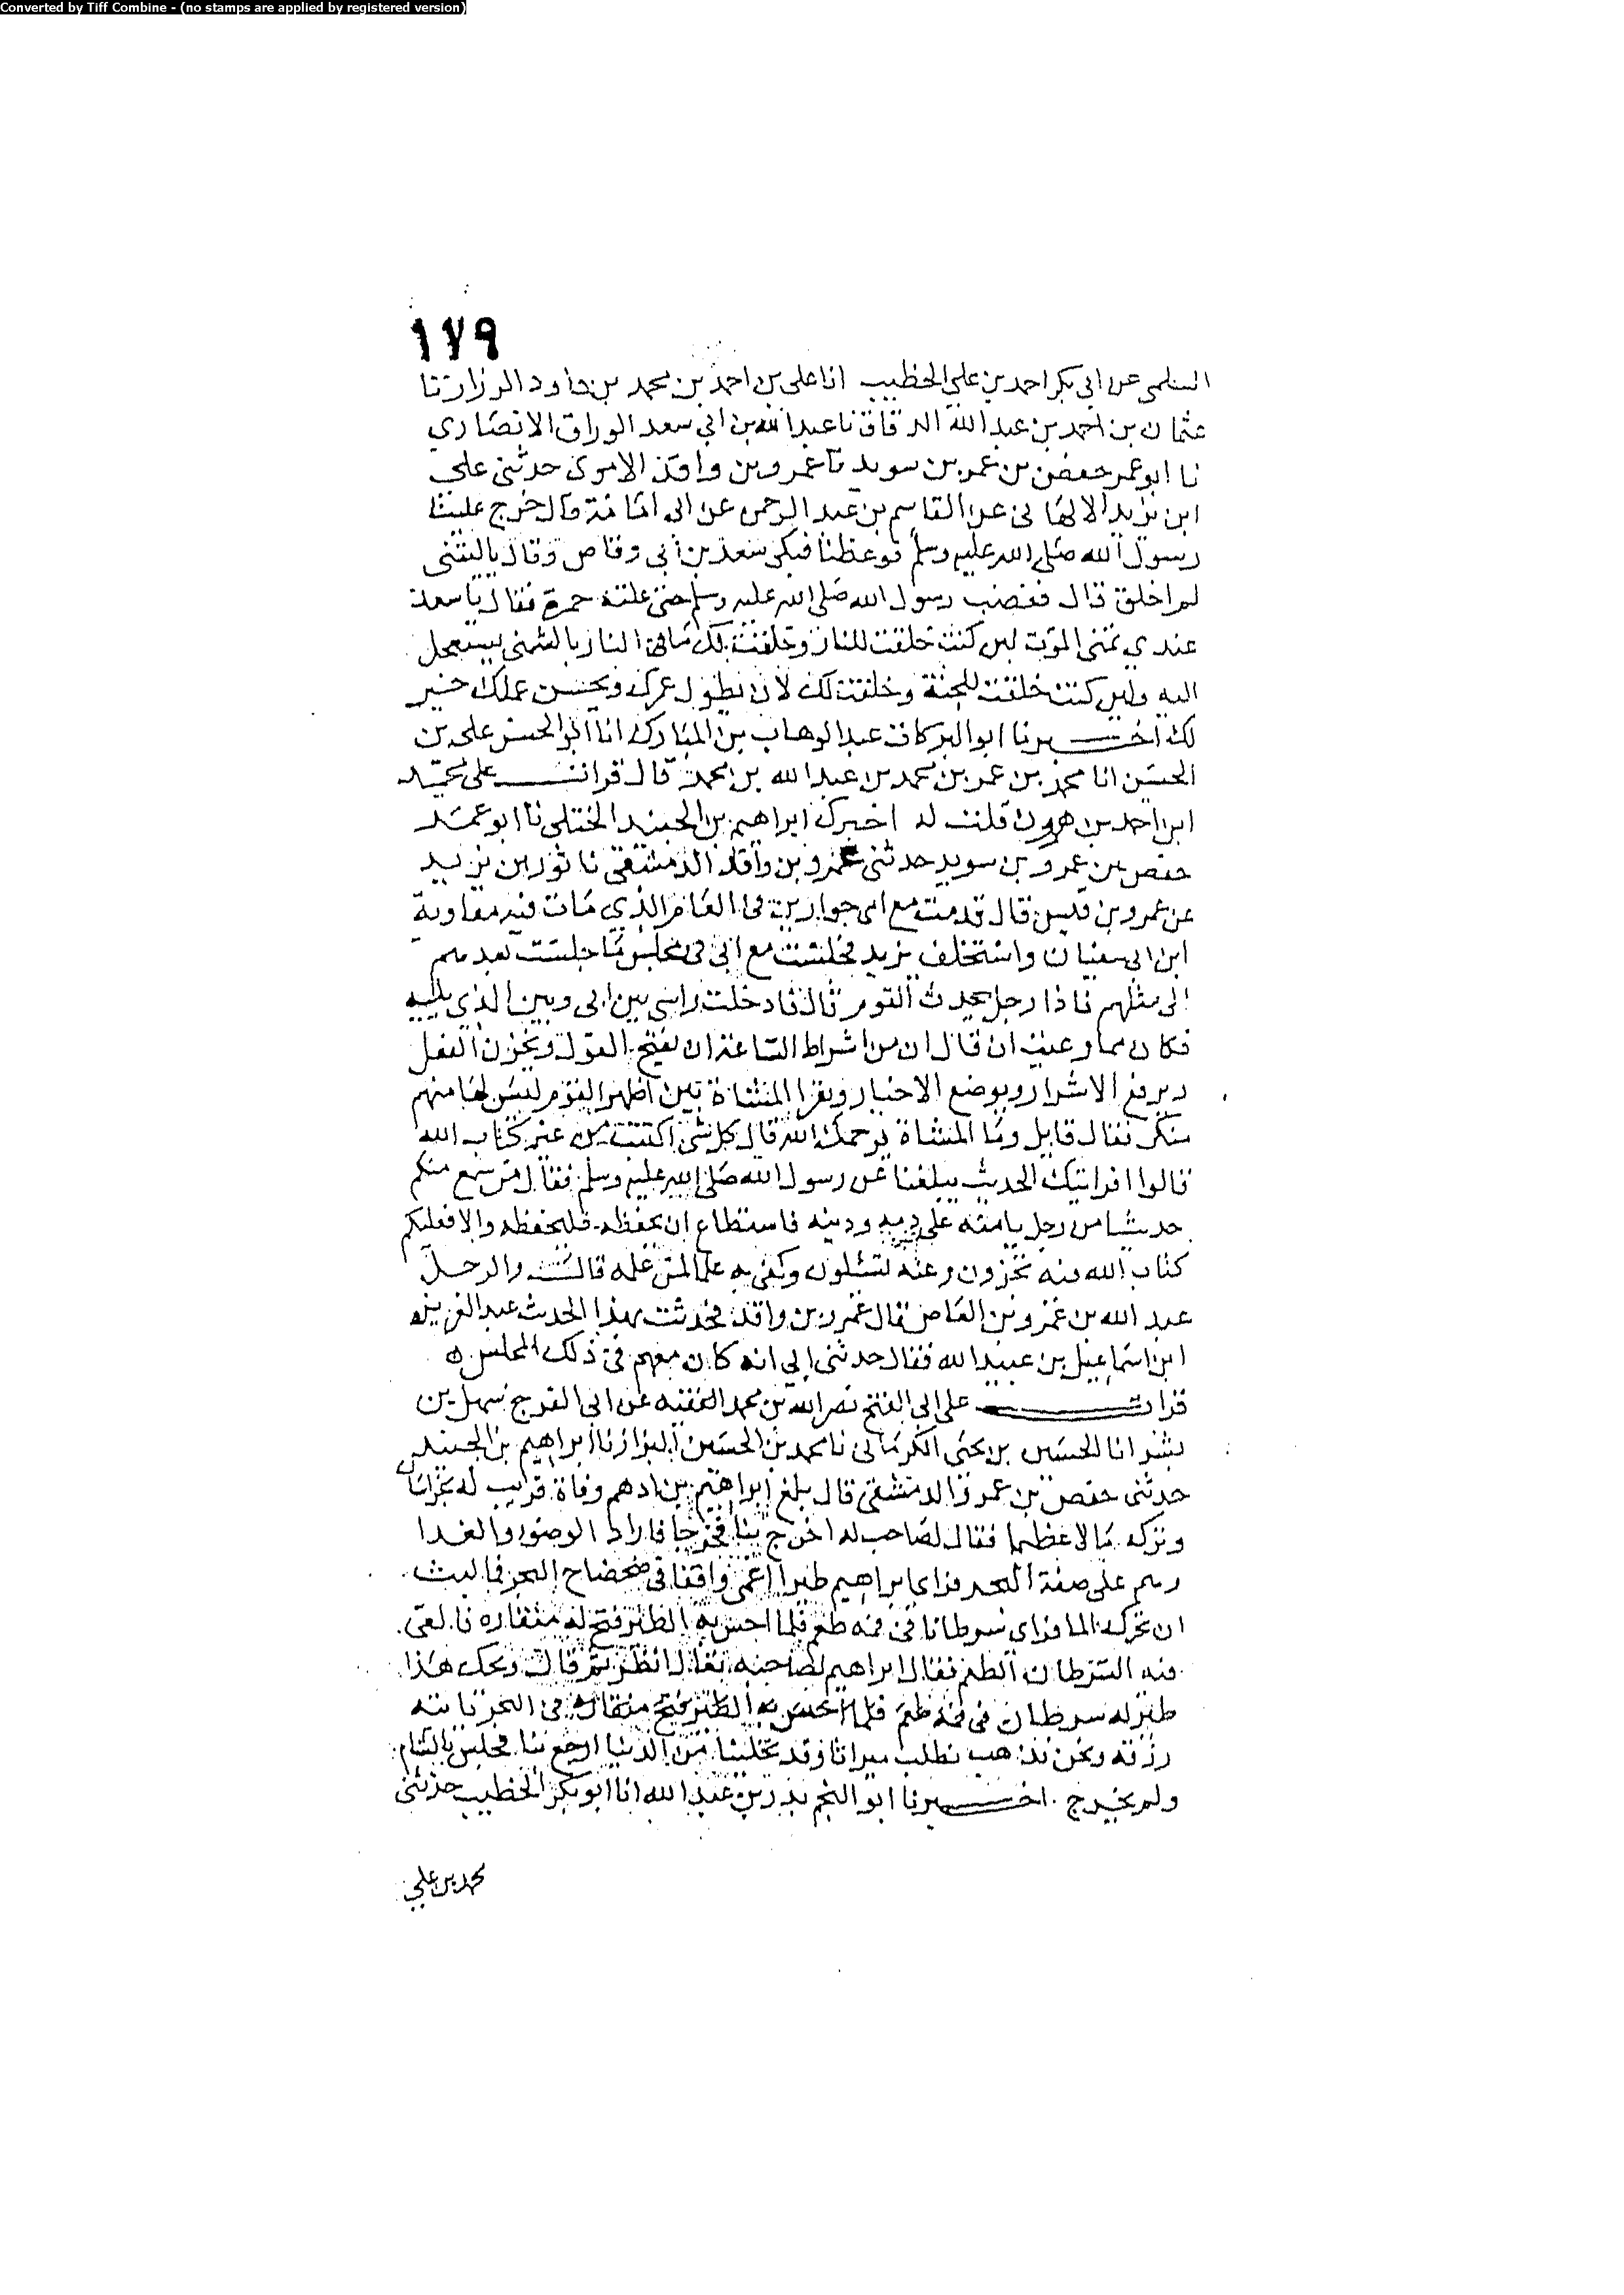 Converted by Tiff Combine - (no stamps are applied by registered version)
١٧٩
السلمى عن ابي بكر احمد بن علي الخطيب انا على بن احمد بن محمد بن داود الرزاز نا
عثمان بن احمد بن عبد الله الدقاق نا عبد الله بن ابي سعد الوراق الانصاري
نا ابو عمر حفص بن عمر بن سويد نا عمرو بن واقد الاموي حدثني علي
ابن يزيد الالهاني عن القاسم بن عبد الرحمن عن ابى امامة قال خرج علينا
رسول الله صلى الله عليه وسلم فوعظنا فبكى سعد بن ابي وقاص وقال ياليتني
لم اخلق قال فغضب رسول الله صلى الله عليه وسلم حتى علته حمرة فقال يا سعد
عندي تمنى الموت لين كنت خلقت للنار وخلقت لك ما في النار بالشئ يستعجل
اليه ولين كنت خلقت للجنة وخلقت لك لان يطول عمرك ويحسن عملك خير
لك اخبرنا ابو البركات عبد الوهاب بن المبارك انا ابو الحسن على بن
الحسن انا محمد بن عمر بن محمد بن عبد الله بن محمد قال قرات على محمد
ابن احمد بن هرون قلت له اخبرك ابراهيم بن الجنيد الختلي نا ابو عمر
حفص بن عمرو بن سويد حدثني عمرو بن واقد الدمشقي نا ثور بن يزيد
عن عمرو بن قيس قال قدمت مع ابى حوارين في العام الذي مات فيه معاوية
ابن ابى سفيان واستخلف يزيد فجلست مع ابي في مجلس ما جلست بعدهم
الى مثلهم فاذا رجل يحدث القوم قال فادخلت راسي بين ابى وبين الذي يليه
فكان مما وعيت ان قال ان من اشراط الساعة ان يفتح القول ويخزن الفعل
ويرفع الاشرار ويوضع الاخيار ويقرا المثناة بين اظهر القوم ليس لها منهم
منكر فقال قايل وما المثناة يرحمك الله قال كل شئ اكتتب من غير كتاب الله
قالوا افرايتك الحديث يبلغنا عن رسول الله صلى الله عليه وسلم فقال من سمع منكم
حديثا من رجل يامنه على دمه ودينه فاستطاع ان يحفظه فليحفظه والا فعليكم
كتاب الله فبه تجزون وعنه تسئلون وكفى به علما لمن علمه قال والرجل
عبد الله بن عمرو بن العاص قال عمرو بن واقد فحدثت بهذا الحديث عبد العزيز
ابن اسماعيل بن عبيد الله فقال حدثني ابي انه كان معهم في ذلك المجلس ه
قرات على ابي الفتح نصر الله بن محمد الفقيه عن ابى الفرج سهل بن
بشر انا الحسين بن يحيى الكرماني نا محمد بن الحسين البزاز نا ابراهيم بن الجنيد
حدثني حفص بن عمرو الدمشقي قال بلغ ابراهيم بن ادهم وفاة قرابب له بخراسان
وتركه مالا عظيما فقال لصاحب له اخرج بنا فخرجا فاراد الوضوء والغدا
وهم على ضفة البحر فراى ابراهيم طيرا اعمى واقفا في ضحضاح البحر فما لبث
ان تحرك الما فراى سرطانا في فمه طعم فلما احس به الطير فتح له منقاره فالقى
فيه السرطان الطعم فقال ابراهيم لصاحبه تعال انظر ثم قال ويحك هذا
طير له سرطان في فمه طعم فلما احس به الطير فتح منقاره في البحر تاتيه
رزقه ونحن نذهب نطلب ميراثا وقد تخلينا من الدنيا ارجع بنا فجلس بالشام
ولم يخرج اخبرنا ابو النجم بدر بن عبد الله انا ابو بكر الخطيب حدثني
محمد بن علي